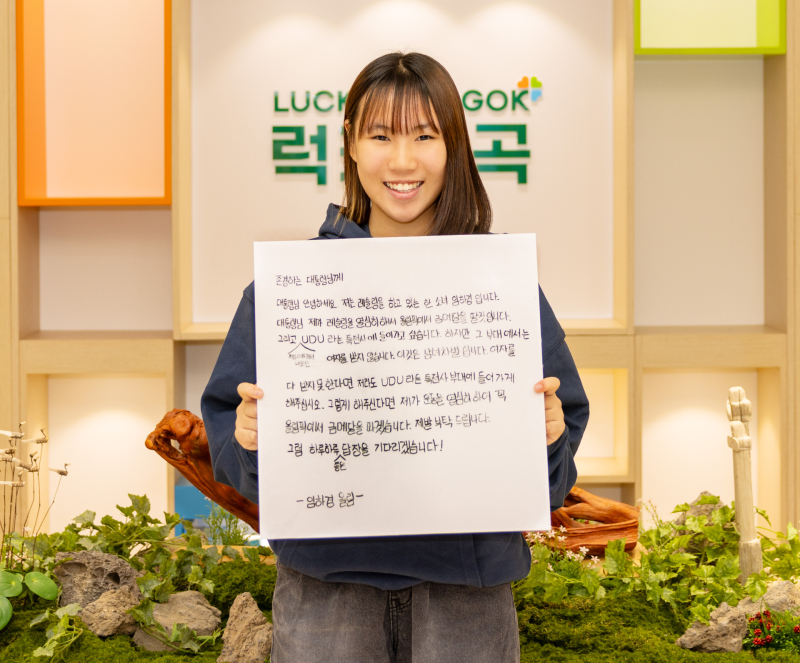 LUCK GOK
럭 곡
존경하는 대통령님께
대통령님 안녕하세요. 저는 레슬링을 하고 있는 한 소녀 염하경 입니다.
대통령님 제가 레슬링을 열심히 해서 올림픽에서 금메달을 딸것입니다.
그리고 UDU 라는 특전사에 들어가고 싶습니다. 하지만 그 부대에서는
여자를 받지 않습니다. 이것은 남녀차별 입니다. 여자를
다 받지 못한다면 저라도 UDU 라는 특전사 부대에 들어가게
해주십시오. 그렇게 해주신다면 제가 운동을 열심히 하여 꼭
올림픽에서 금메달을 따겠습니다. 제발 부탁 드립니다.
그럼 하루하루 답장을 기다리겠습니다!
- 염하경 올림 -